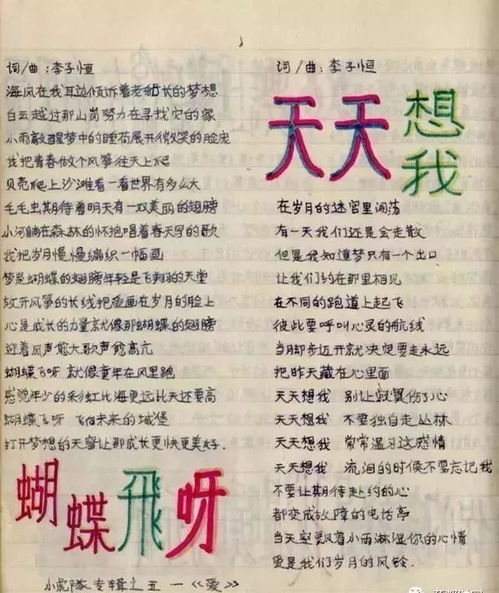 词/曲:李子恒
海风在我耳边倾诉着老船长的梦想
白云越过那山岗努力在寻找它的家
小雨敲醒梦中的睡荷展开微笑的脸庞
我把青春做个风筝往天上爬
贝壳爬上沙滩看一看世界有多么大
毛毛虫期待着明天有一双美丽的翅膀
小河躺在森林的怀抱唱着春天写的歌
我把岁月慢慢编织一幅画
梦是蝴蝶的翅膀年轻是飞翔的天堂
放开风筝的长线把爱画在岁月的脸上
心是成长的力量就像那蝴蝶的翅膀
迎着风声愈大歌声愈高亢
蝴蝶飞呀 就像童年在风里跑
感觉年少的彩虹比海更远比天还要高
蝴蝶飞呀 飞向未来的城堡
打开梦想的天窗让那成长更快更美好.
蝴蝶飛呀
小虎隊专辑之五一《爱》
词/曲:李子恒
天天想我
在岁月的迷宫里闯荡
有一天我们还是会走散
但是我知道梦只有一个出口
让我们约在那里相见
在不同的跑道上起飞
彼此要呼叫心灵的航线
当脚步迈开就决定要走永远
把昨天藏在心里面
天天想我 别让寂寞伤了心
天天想我 不要独自走丛林
天天想我 常常温习这感情
天天想我 流泪的时候不要忘记我
不要让期待赴约的心
都变成故障的电话亭
当天空飘着小雨淋湿你的心情
更是我们岁月的风铃.